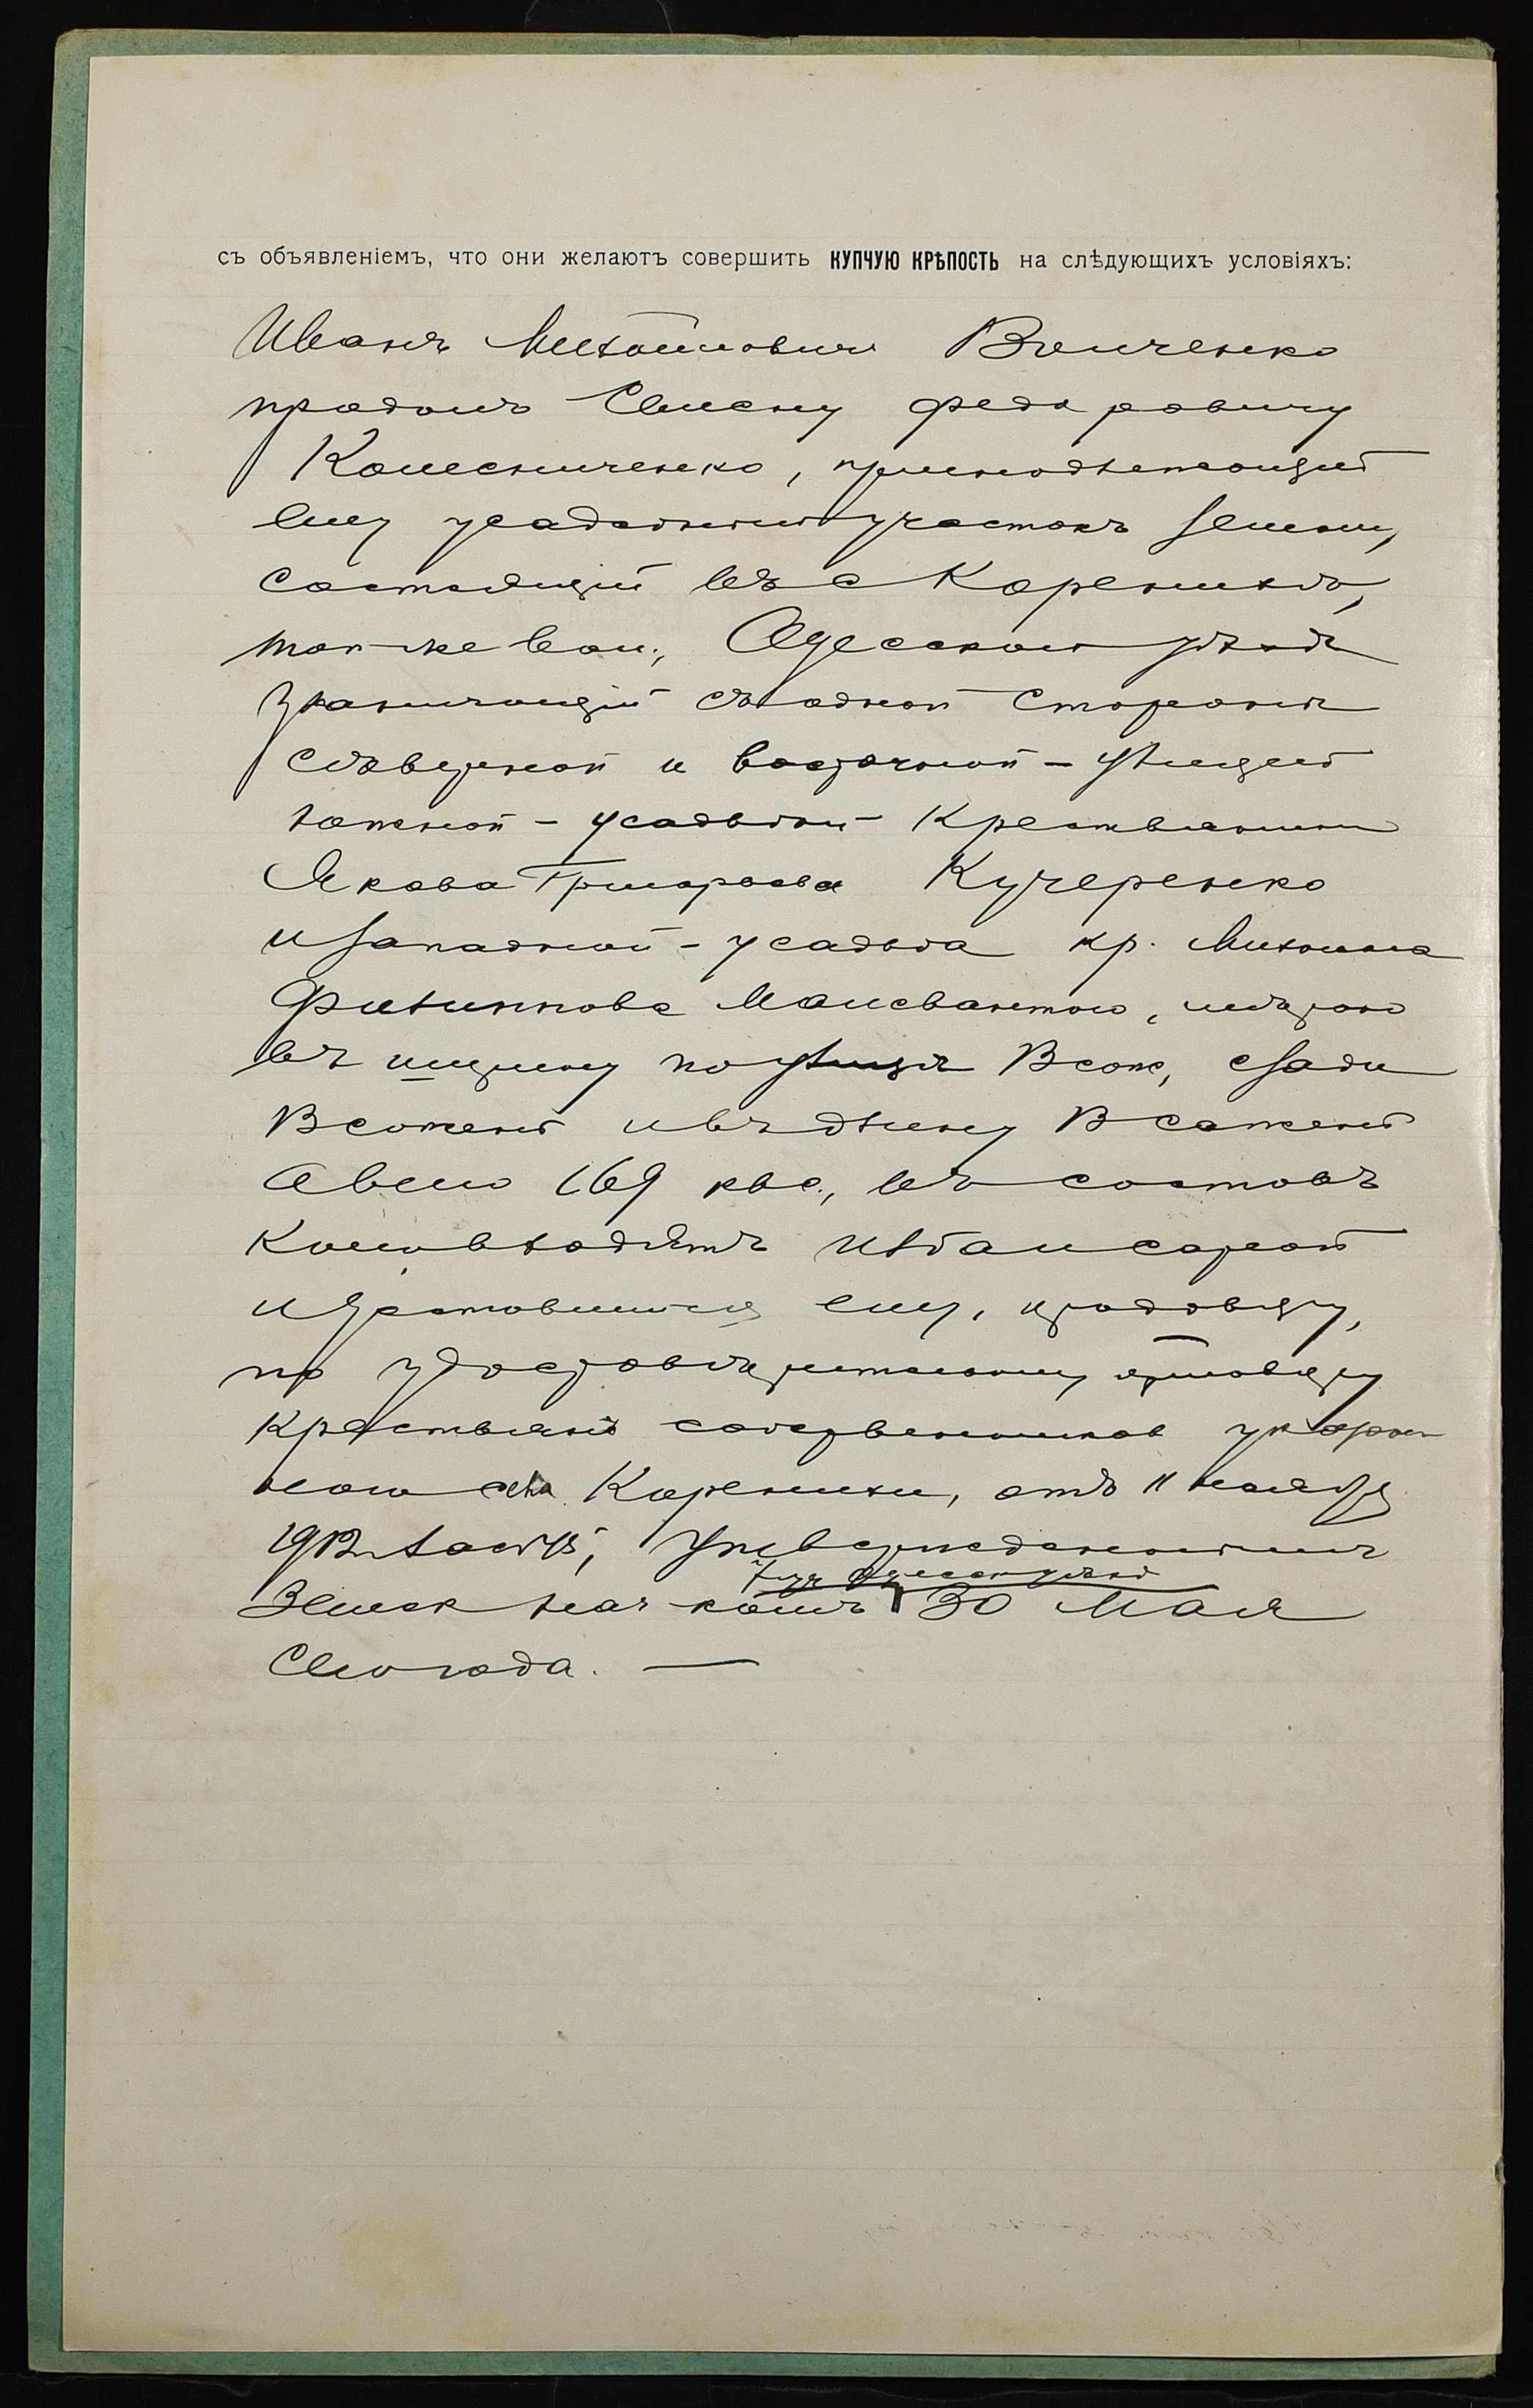 съ объявленіемъ, что они желаютъ совершить КУПЧУЮ КРѢПОСТЬ на слѣдующихъ условіяхъ:
Иванъ Михайловичъ
продалъ Федоровичу
Колесниченко, принадлежащій
ему усадебный участокъ земли,
состоящій въ с Каренихѣ,
той-же вол., Одесскаго уѣзда
граничащій съ одной стороны
сѣверной и восточной - улицей
южной - усадьбой крестьянина
Якова Григорьева Кучеренко
и западной - усадьба кр. Михаила
Филиппова мѣрою
въ ширину по улицѣ 13 саж, сзади
13 сажень и въ длину 13 сажень
а всего 169 кв с., въ составъ
коего входятъ изба и сарай
и доставшійся ему, продавцу,
по удостовѣрительному приговору
крестьянъ собственниковъ
села Каренихи, отъ 11 ноября
1912 года утвержденнымъ
Земск нач-комъ 30 Мая
сего года. —